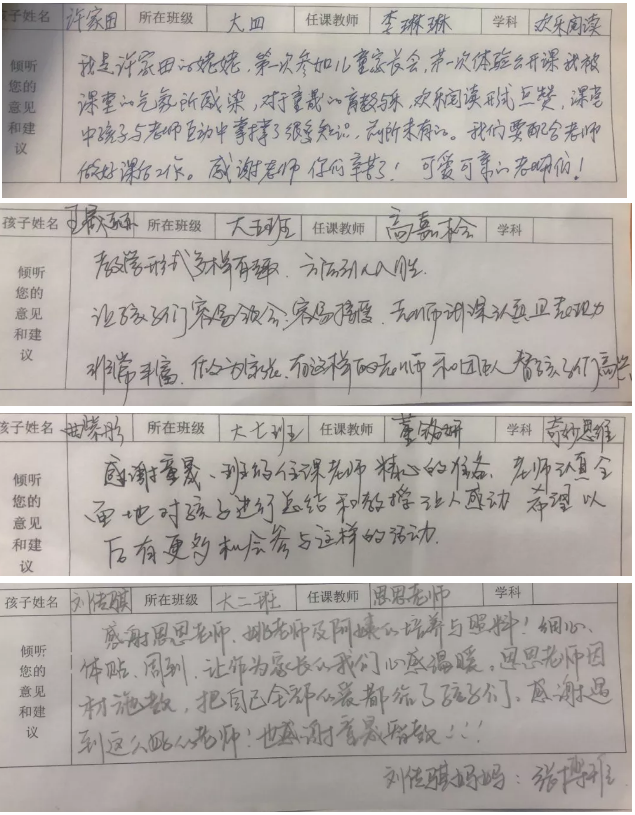 孩子姓名 许家田 所在班级 大四 任课教师 李琳琳 学科 欢乐阅读
倾听您的意见和建议
我是许家田的姥姥,第一次参加儿童家长会,第一次体验公开课我被
课堂的气氛所感染,对于童晟的育教与乐,欢乐阅读形式点赞,课堂
中孩子与老师互动中掌握了很多知识,前所未有的。我们要配合老师
做好课后工作。感谢老师你们辛苦了!可爱可亲的老师们!
孩子姓名 所在班级 大五班 任课教师 高嘉 学科
倾听您的意见和建议
教学形式多样有趣、方法引人入胜.
让孩子们容易领会、容易接受、老师讲课认真且表现力
非常丰富、作为家长、有这样的老师和团队替孩子们高兴
孩子姓名 所在班级 大七班 任课教师 董铭妍 学科 奇妙思维
倾听您的意见和建议
感谢童晟、班级任课老师精心的准备、老师认真全
面地对孩子进行总结和教授让人感动 希望以
后有更多机会参与这样的活动.
孩子姓名 刘佳骐 所在班级 大二班 任课教师 思思老师 学科
倾听您的意见和建议
感谢思思老师、姚老师及阿姨的培养与照料!细心、
体贴、周到、让作为家长的我们心感温暖。思思老师因
材施教,把自己全部的爱都给了孩子们。感谢遇
到这么好的老师!也感谢童晟学教!!!
刘佳骐妈妈:张